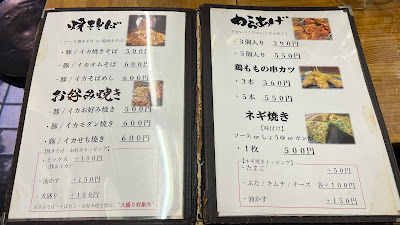 焼きそば
・ソース焼きそば or 塩焼きそば
・豚/イカ焼きそば 500円
・豚/イカオムそば 600円
・豚/イカそばめし 600円
お好み焼き
・豚/イカお好み焼き 500円
・豚/イカモダン焼き 600円
・豚/イカせち焼き 600円
【焼きそば・お好みトッピング】
・ミックス +100円
(豚&イカ)
・油かす +150円
・大盛り +100円
"大盛り対象外"
からあげ
・3個入り 390円
・5個入り 500円
鶏ももの串カツ
・3本 360円
・5本 550円
ネギ焼き
【味付け】
ソース or しょうゆ or ポン
・1枚 500円
・たまご +50円
・ぶた/キムチ/チーズ 各+100円
・油かす +150円